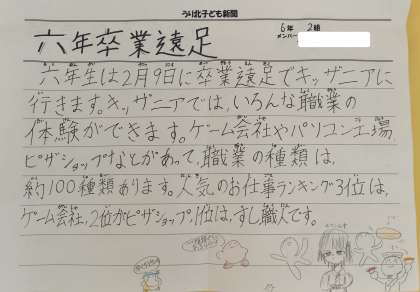 うり北子ども新聞
6年 2組
メンバー
六年卒業遠足
六年生は2月9日に卒業遠足でキッザニアに
行きます。キッザニアでは、いろんな職業の
体験ができます。ゲーム会社やパソコン工場、
ピザショップなどがあって、職業の種類は、
約100種類あります。人気のお仕事ランキング3位は、
ゲーム会社、2位がピザショップ、1位は、すし職人です。